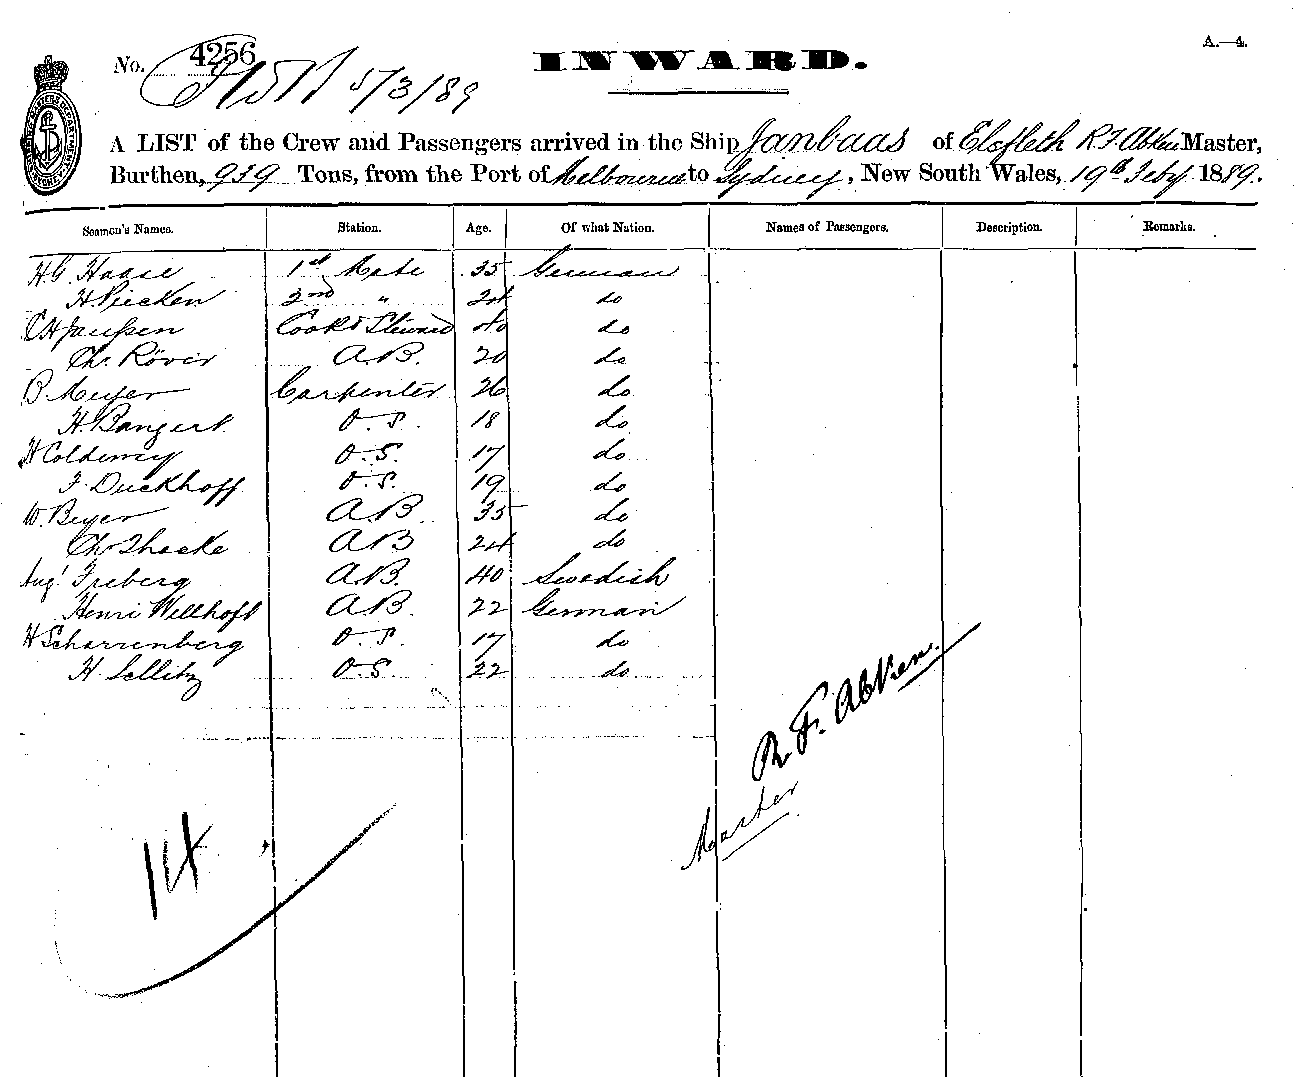 A.—4.
No. 4256
INWARD.
5/3/89
A LIST of the Crew and Passengers arrived in the Ship Janbaas of Elsfleth R F Abken Master,
Burthen, 939 Tons, from the Port of Melbourne to Sydney, New South Wales, 19th Feby 1889.
Seamen's Names. Station. Age. Of what Nation. Names of Passengers. Description. Remarks.
H.G. Haase 1st Mate 35 German
H. Piecken 2nd " 24 do
C H Janssen Cook & Steward 40 do
Chr. Röver A.B. 20 do
B Meyer Carpenter 26 do
H. Bangert O.S. 18 do
H Coldewey O.S. 17 do
F. Duckhoff O.S. 19 do
W. Beyer A.B. 35 do
Chr Thacke A.B 24 do
Aug! Freberg A.B. 40 Swedish
Henri Wellhoft A.B. 22 German
H Scharrenberg O.S. 17 do
H. Sellitz O.S. 22 do
R. F. Abken.
Master
14